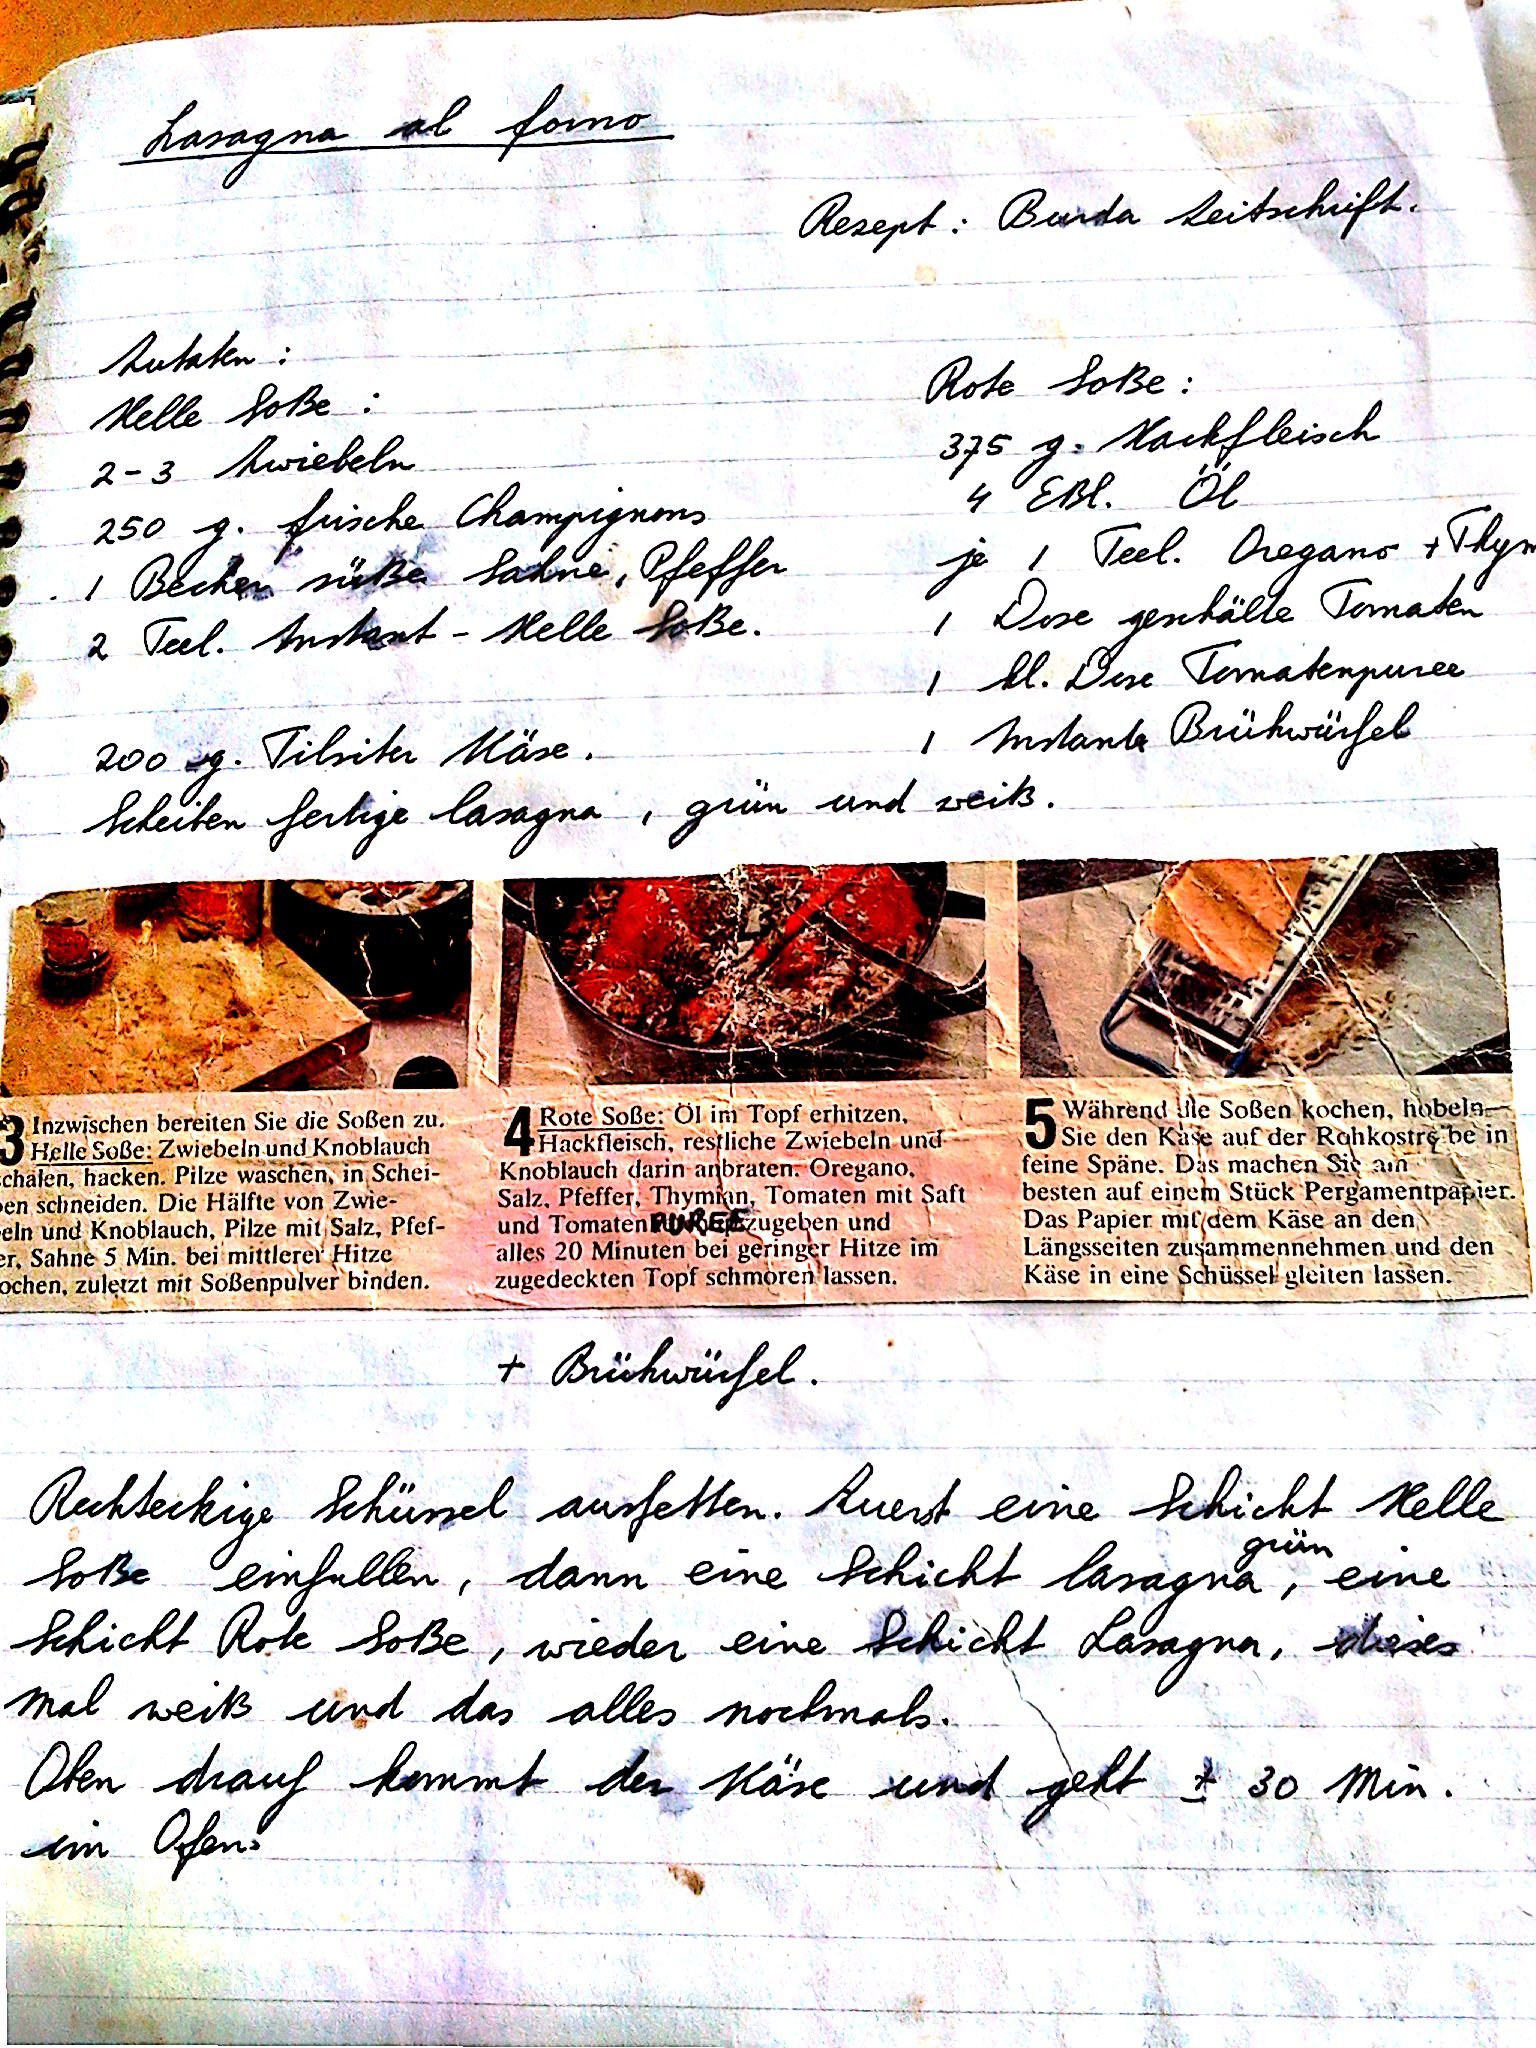 Lasagna al forno
Rezept: Burda Zeitschrift.
Zutaten:
Helle Soße:
2-3 Zwiebeln
250 g. frische Champignons
1 Becher süße Sahne, Pfeffer
2 Teel. Instant - Helle Soße.
200 g. Tilsiter Käse.
Scheiben fertige lasagna, grün und weiß.
Rote Soße:
375 g. Hackfleisch
4 Eßl. Öl
je 1 Teel. Oregano + Thym
1 Dose geschälte Tomaten
1 kl. Dose Tomatenpuree
1 Instant Brühwürfel
3 Inzwischen bereiten Sie die Soßen zu.
Helle Soße: Zwiebeln und Knoblauch
schälen, hacken. Pilze waschen, in Schei-
ben schneiden. Die Hälfte von Zwie-
beln und Knoblauch, Pilze mit Salz, Pfef-
er, Sahne 5 Min. bei mittlerer Hitze
ochen, zuletzt mit Soßenpulver binden.
4 Rote Soße: Öl im Topf erhitzen,
Hackfleisch, restliche Zwiebeln und
Knoblauch darin anbraten. Oregano,
Salz, Pfeffer, Thymian, Tomaten mit Saft
und Tomaten PUREE zugeben und
alles 20 Minuten bei geringer Hitze im
zugedeckten Topf schmoren lassen.
5 Während die Soßen kochen, hobeln
Sie den Käse auf der Rohkostreibe in
feine Späne. Das machen Sie am
besten auf einem Stück Pergamentpapier.
Das Papier mit dem Käse an den
Längsseiten zusammennehmen und den
Käse in eine Schüssel gleiten lassen.
+ Brühwürfel.
Rechteckige Schüssel ausfetten. Zuerst eine Schicht Helle
Soße einfullen, dann eine Schicht lasagna grün, eine
Schicht Rote Soße, wieder eine Schicht Lasagna, dieses
mal weiß und das alles nochmals.
Oben drauf kommt der Käse und geht ± 30 Min.
im Ofen.